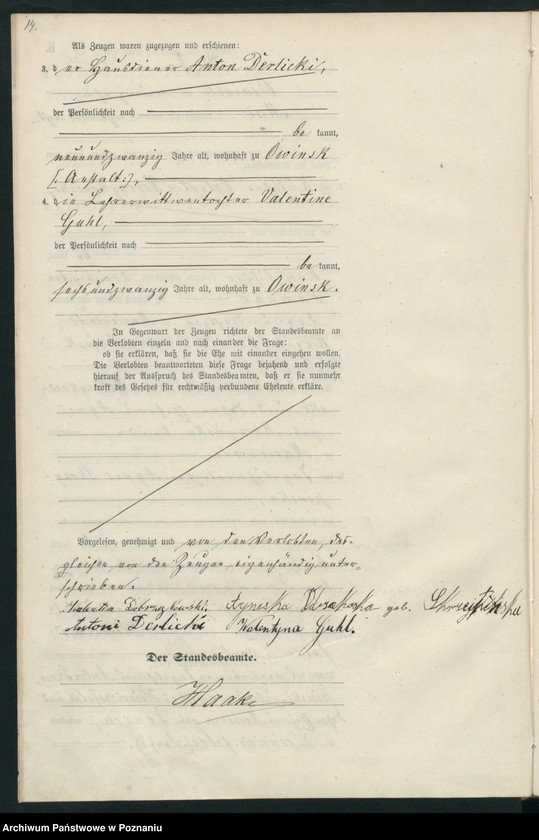 14.
Als Zeugen waren zugezogen und erschienen:
3. der Hausdiener Anton Derlicki,
der Persönlichkeit nach
be kannt,
neunundzwanzig Jahre alt, wohnhaft zu Owinsk
[: Anstalt :],
4. die Lehrerwittwentochter Valentine
Guhl,
der Persönlichkeit nach
be kannt,
sechsundzwanzig Jahre alt, wohnhaft zu Owinsk.
In Gegenwart der Zeugen richtete der Standesbeamte an
die Verlobten einzeln und nach einander die Frage:
ob sie erklären, daß sie die Ehe mit einander eingehen wollen.
Die Verlobten beantworteten diese Frage bejahend und erfolgte
hierauf der Ausspruch des Standesbeamten, daß er sie nunmehr
kraft des Gesetzes für rechtmäßig verbundene Eheleute erkläre.
Vorgelesen, genehmigt und von den Verlobten, des-
gleichen von den Zeugen eigenhändig unter-
schrieben.
Agnieska geb.
Antoni Derlicki Walentyna Guhl.
Der Standesbeamte.
Haake
Archiwum Państwowe w Poznaniu